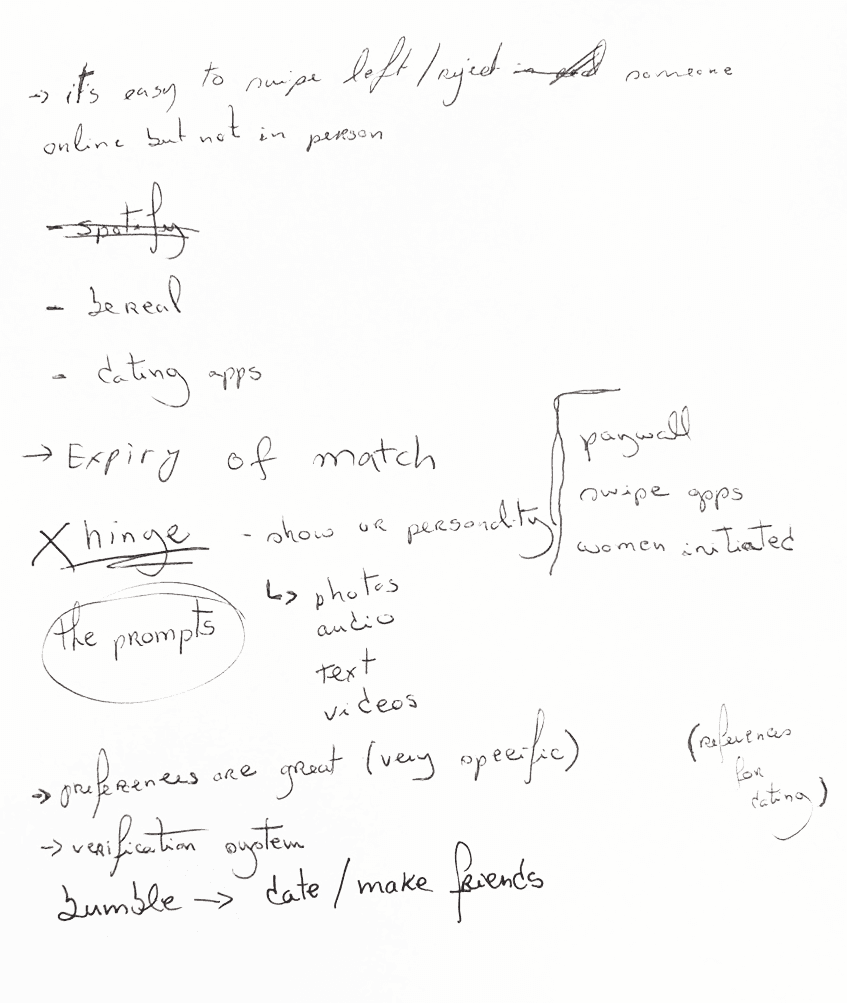 → it's easy to swipe left / reject someone
online but not in person
- spotify
- bereal
- dating apps
→ Expiry of match
X hinge - show ur personality
paywall
swipe apps
women initiated
the prompts
↳ photos
audio
text
videos
→ preferences are great (very specific)
(references
for
dating)
→ verification system
bumble → date / make friends